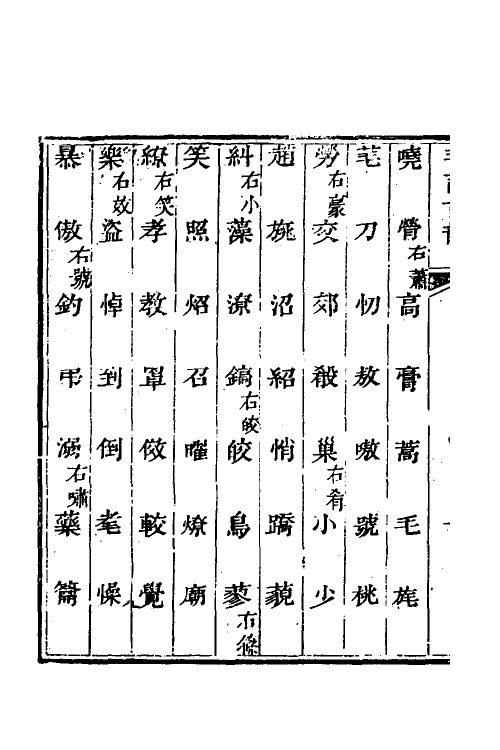 嘵膋右蕭高膏蒿毛旄
芼刀忉敖嗷號桃
勞右豪交郊殽巢右肴小少
趙旐沼紹悄蹻藐
糾右小藻潦鎬右皓皎鳥蓼右篠
笑照炤召曜燎廟
繚右笑孝教罩傚較覺
樂右效盜悼到倒耄慅
暴傲右號釣弔溺右嘯藥籥